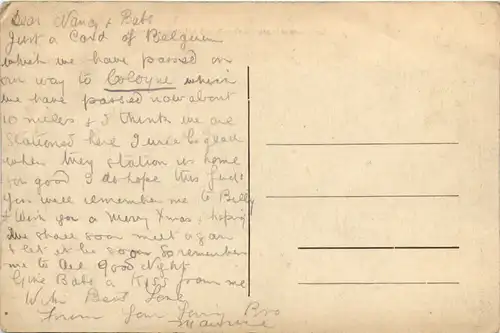 Dear Nancy & Babs
Just a Card of Belgium
which we have passed on
our way to Cologne which
we have passed now about
10 miles & I think we are
stationed here I will be glad
when they station us home
for good I do hope this finds
you well remember me to Billy
& Wish you a Merry Xmas & hoping
we shall soon meet again
& let it be soon so remember
me to all Good Night
Give Babs a Kiss from me
With Best Love
From Your Loving Bro
Maurice